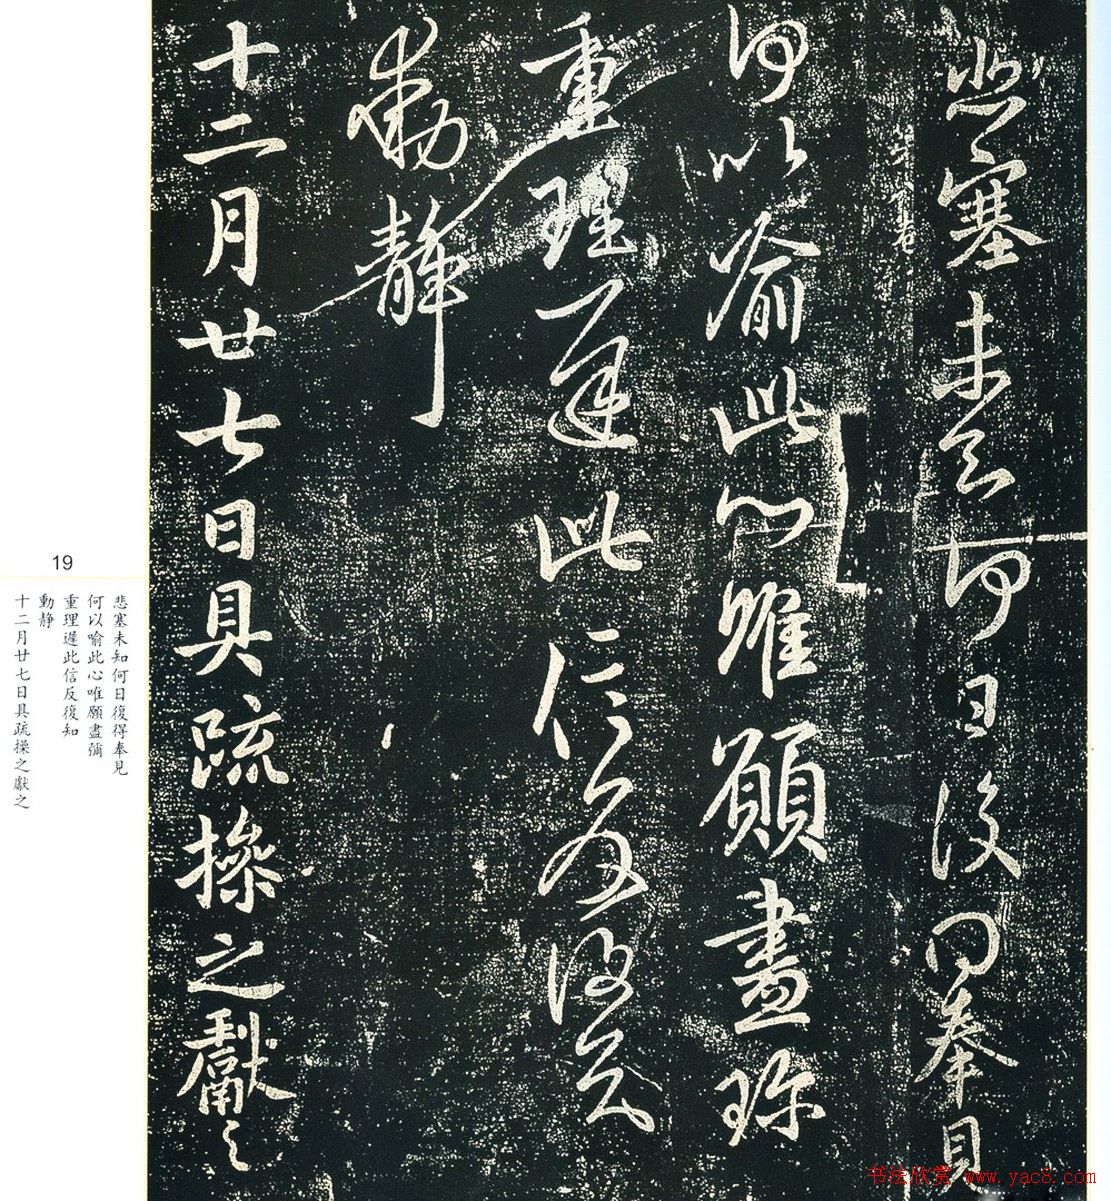 悲塞未知何日復得奉見
何以喻此心唯願盡珎
重理遲此信反復知
動靜
十二月廿七日具疏操之獻之
19
悲塞未知何日復得奉見
何以喻此心唯願盡彌
重理遲此信反復知
動靜
十二月廿七日具疏操之獻之
书法欣赏 www.yac8.com